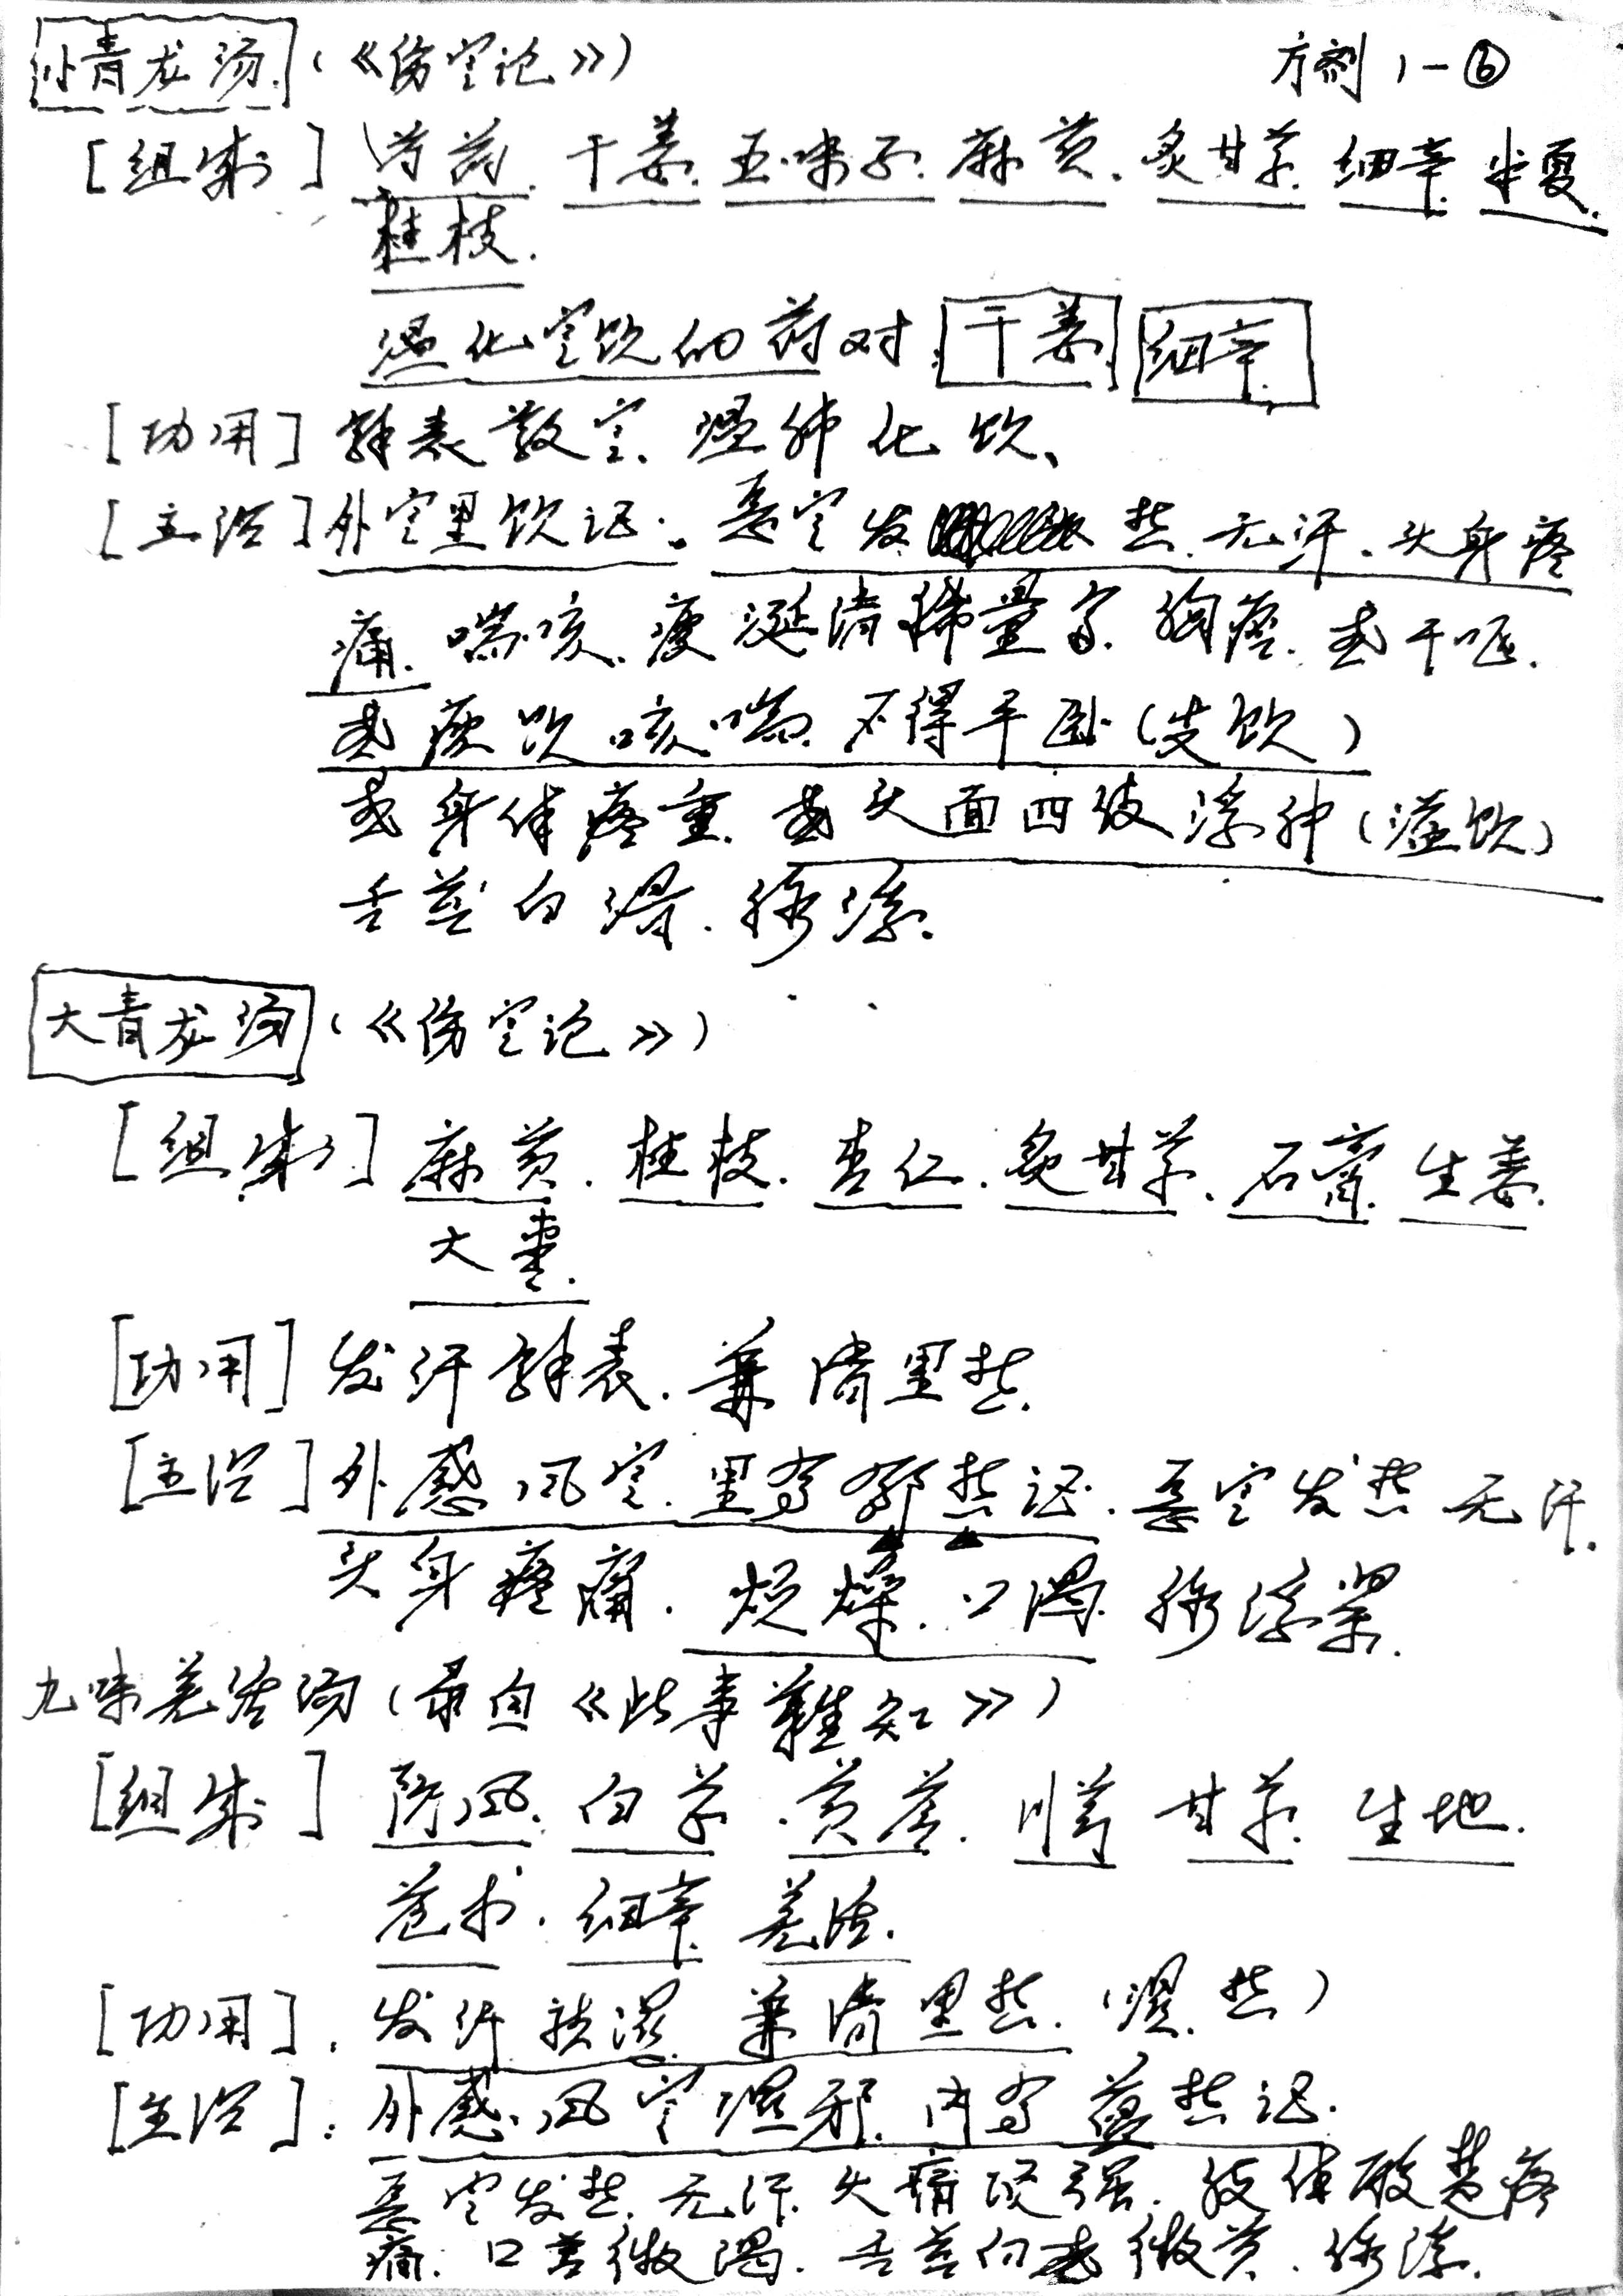 小青龙汤(《伤寒论》) 方剂1-⑥
[组成] 芍药.干姜.五味子.麻黄.炙甘草.细辛.半夏.
桂枝.
温化寒饮的药对:干姜 细辛.
[功用] 解表散寒.温肺化饮、
[主治]外寒里饮证.恶寒发热.无汗.头身疼
痛.喘咳.痰涎清稀量多.胸痞.或干呕.
或痰饮咳喘.不得平卧(支饮)
或身体疼重.或头面四肢浮肿(溢饮)
舌苔白滑.脉浮.
大青龙汤(《伤寒论》)
[组成] 麻黄.桂枝.杏仁.炙甘草.石膏.生姜.
大枣.
[功用] 发汗解表.兼清里热.
[主治] 外感风寒.里有郁热证.恶寒发热 无汗.
头身疼痛.烦燥.口渴.脉浮紧.
九味羌活汤(录自《此事難知》)
[组成] 防风.白芷.黄芩.川芎 甘草.生地.
苍术.细辛.羌活.
[功用].发汗祛湿.兼清里热.(湿.热)
[主治]:外感风寒湿邪.内有蕴热证.
恶寒发热.无汗.头痛项强.肢体酸楚疼
痛.口苦微渴.舌苔白或微黄.脉浮.